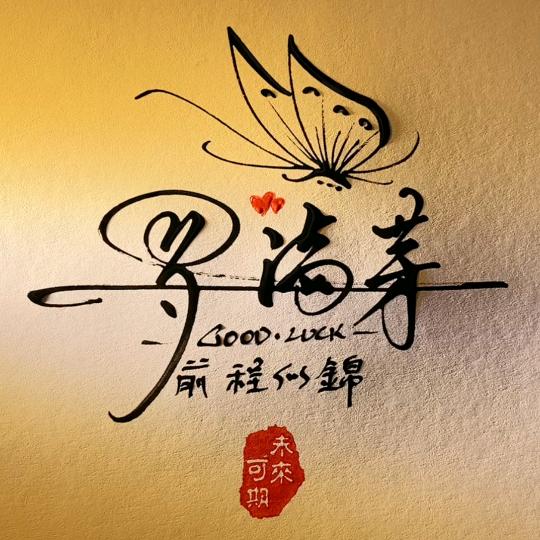 GOOD·LUCK
前程似錦
未來
可期